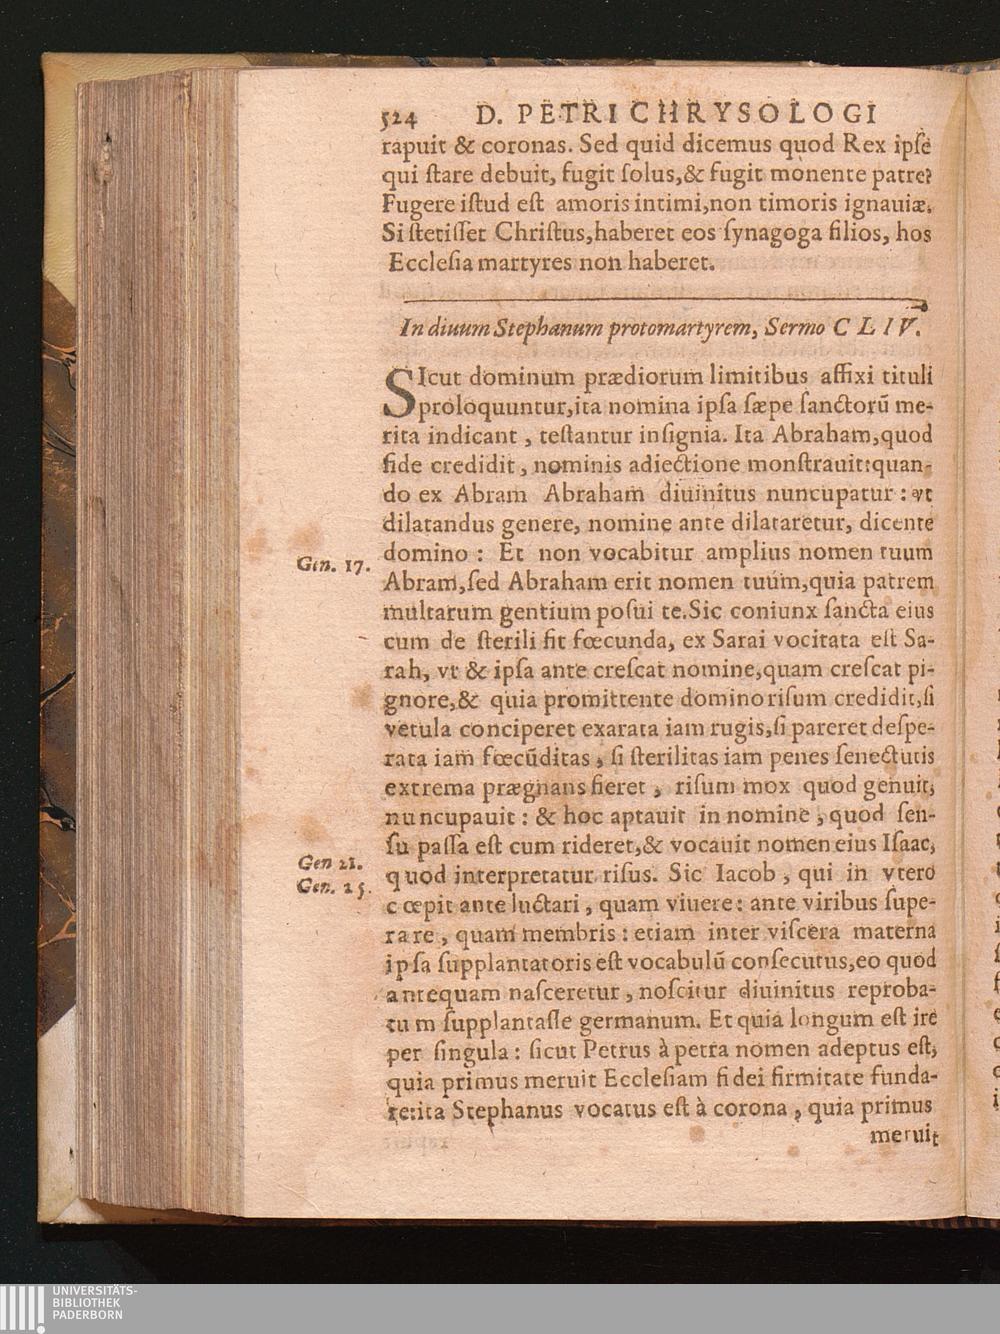 524 D. PETRI CHRYSOLOGI
rapuit & coronas. Sed quid dicemus quod Rex ipſe
qui ſtare debuit, fugit ſolus,& fugit monente patre?
Fugere iſtud eſt amoris intimi,non timoris ignauiæ.
Si ſtetiſſet Chriſtus,haberet eos ſynagoga filios, hos
Eccleſia martyres non haberet.
In diuum Stephanum protomartyrem, Sermo CLIV.
SIcut dominum prædiorum limitibus affixi tituli
proloquuntur,ita nomina ipſa ſæpe ſanctorū me-
rita indicant , teſtantur inſignia. Ita Abraham,quod
fide credidit, nominis adiectione monſtrauit:quan-
do ex Abram Abraham diuinitus nuncupatur : vt
dilatandus genere, nomine ante dilataretur, dicente
domino : Et non vocabitur amplius nomen tuum
Gen. 17.
Abram,ſed Abraham erit nomen tuum,quia patrem
multarum gentium poſui te.Sic coniunx ſancta eius
cum de ſterili fit fœcunda, ex Sarai vocitata eſt Sa-
rah, vt & ipſa ante creſcat nomine,quam creſcat pi-
gnore,& quia promittente domino riſum credidit,ſi
vetula conciperet exarata iam rugis,ſi pareret deſpe-
rata iam fœcūditas , ſi ſterilitas iam penes ſenectutis
extrema prægnans fieret , riſum mox quod genuit,
nuncupauit : & hoc aptauit in nomine , quod ſen-
ſu paſſa eſt cum rideret,& vocauit nomen eius Iſaac,
Gen 21.
quod interpretatur riſus. Sic Iacob , qui in vtero
Gen. 25.
cœpit ante luctari , quam viuere: ante viribus ſupe-
rare , quam membris : etiam inter viſcera materna
ipſa ſupplantatoris eſt vocabulū conſecutus,eo quod
antequam naſceretur , noſcitur diuinitus reproba-
tum ſupplantaſſe germanum. Et quia longum eſt ire
per ſingula : ſicut Petrus à petra nomen adeptus eſt,
quia primus meruit Eccleſiam fidei firmitate funda-
re:ita Stephanus vocatus eſt à corona , quia primus
meruit
UNIVERSITÄTS-
BIBLIOTHEK
PADERBORN